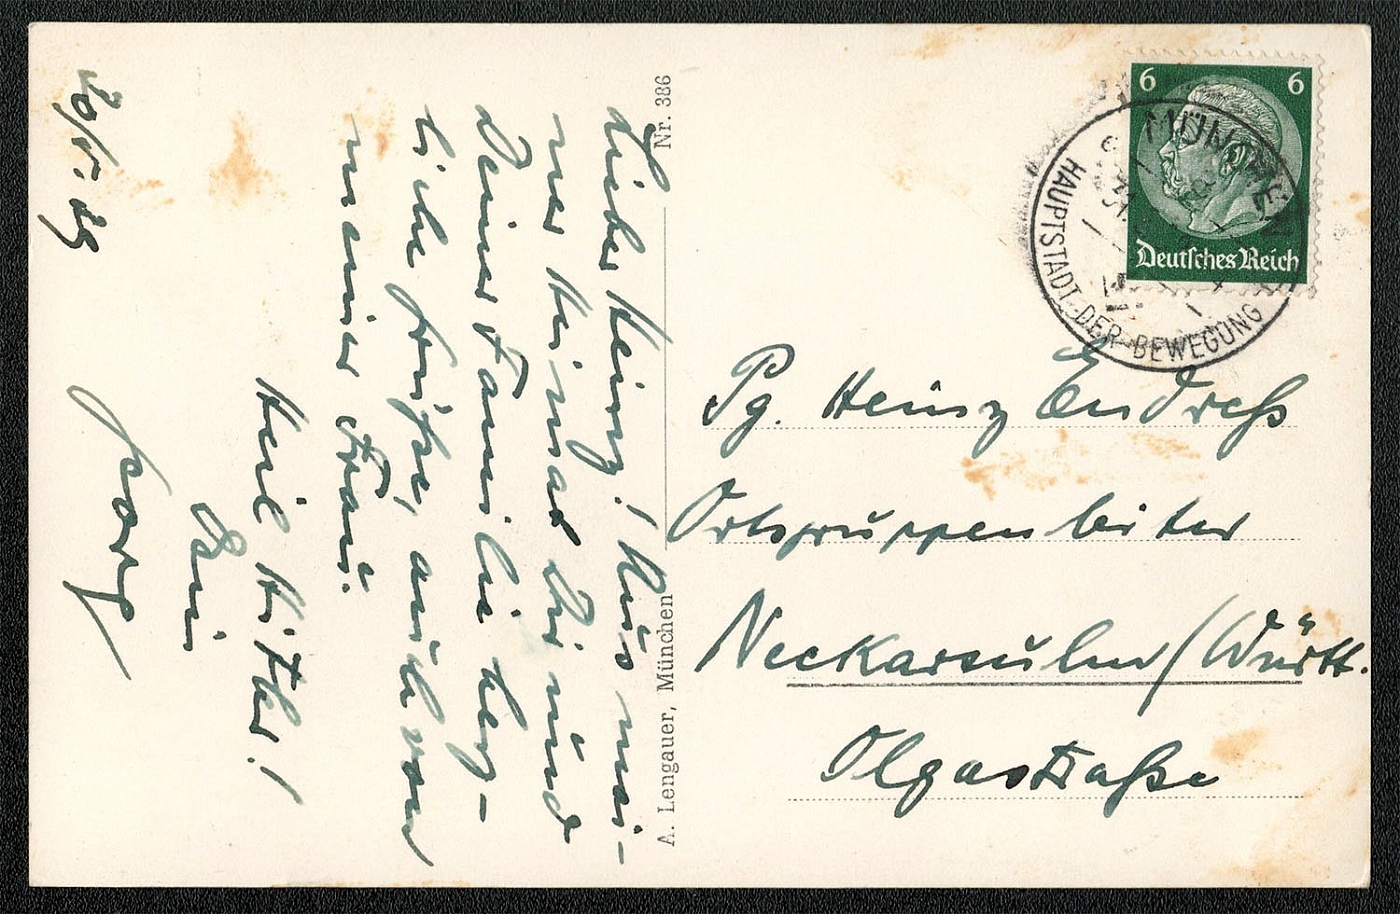 20/5. 39
Lieber Heinz! Aus mei-
ner Heimat Dir und
Deiner Familie herz-
liche Grüße, auch von
meiner Frau.
Heil Hitler!
Dein
Georg
Nr. 386
A. Lengauer, München
6 6
Deutsches Reich
MÜNCHEN
HAUPTSTADT DER BEWEGUNG
Pg. Heinz Endreß
Ortsgruppenleiter
Neckarsulm/Württ.
Olgastraße